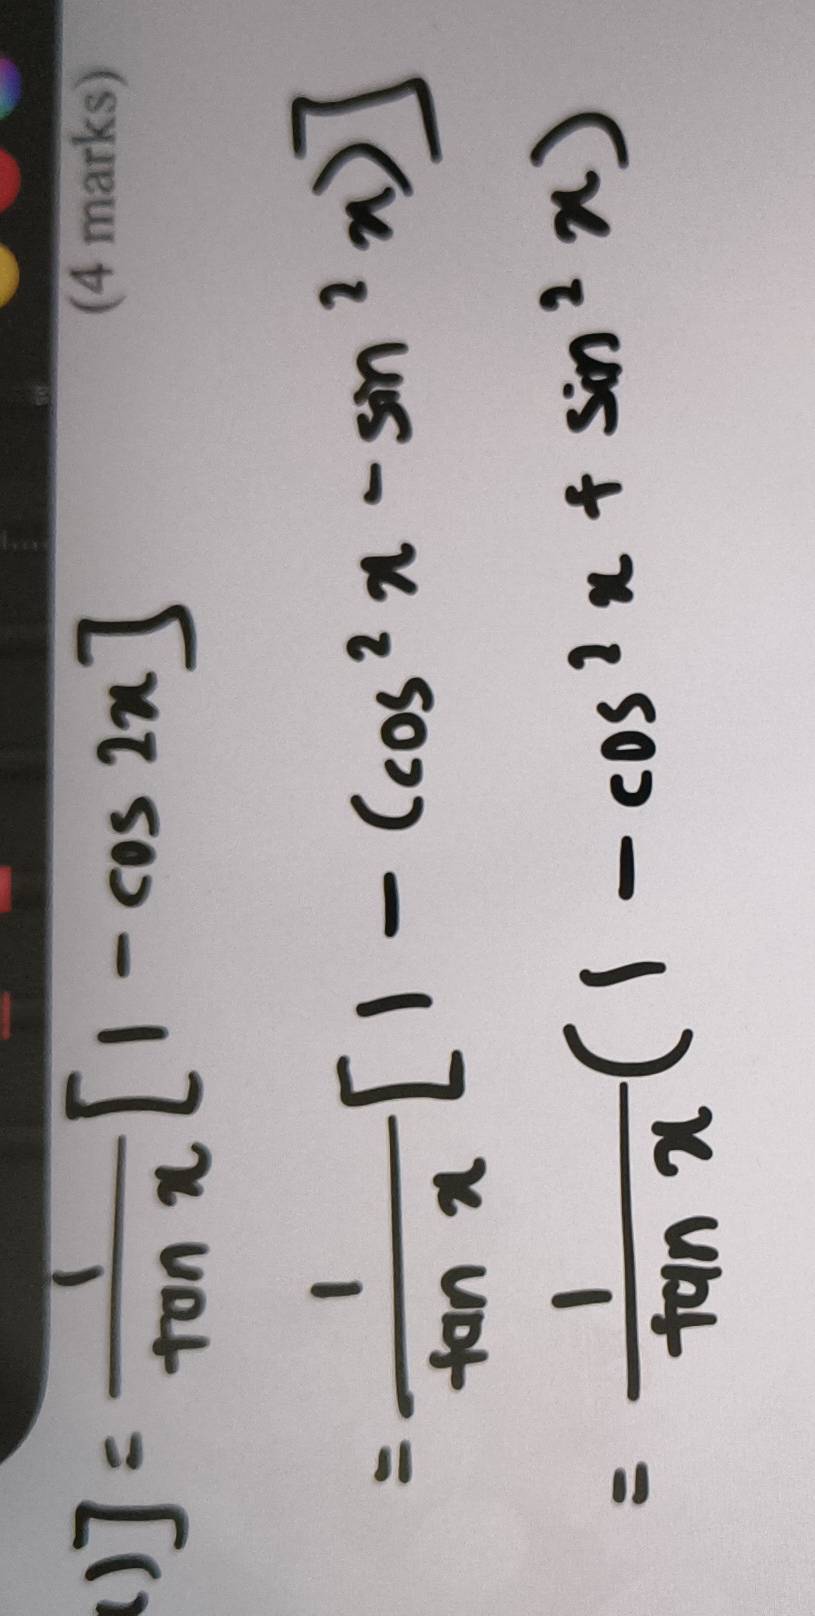 (4 marks)
)] = 1/tan x [1 - cos 2x]
= 1/tan x [1 - (cos² x - sin² x)]
= 1/tan x (1 - cos² x + sin² x)